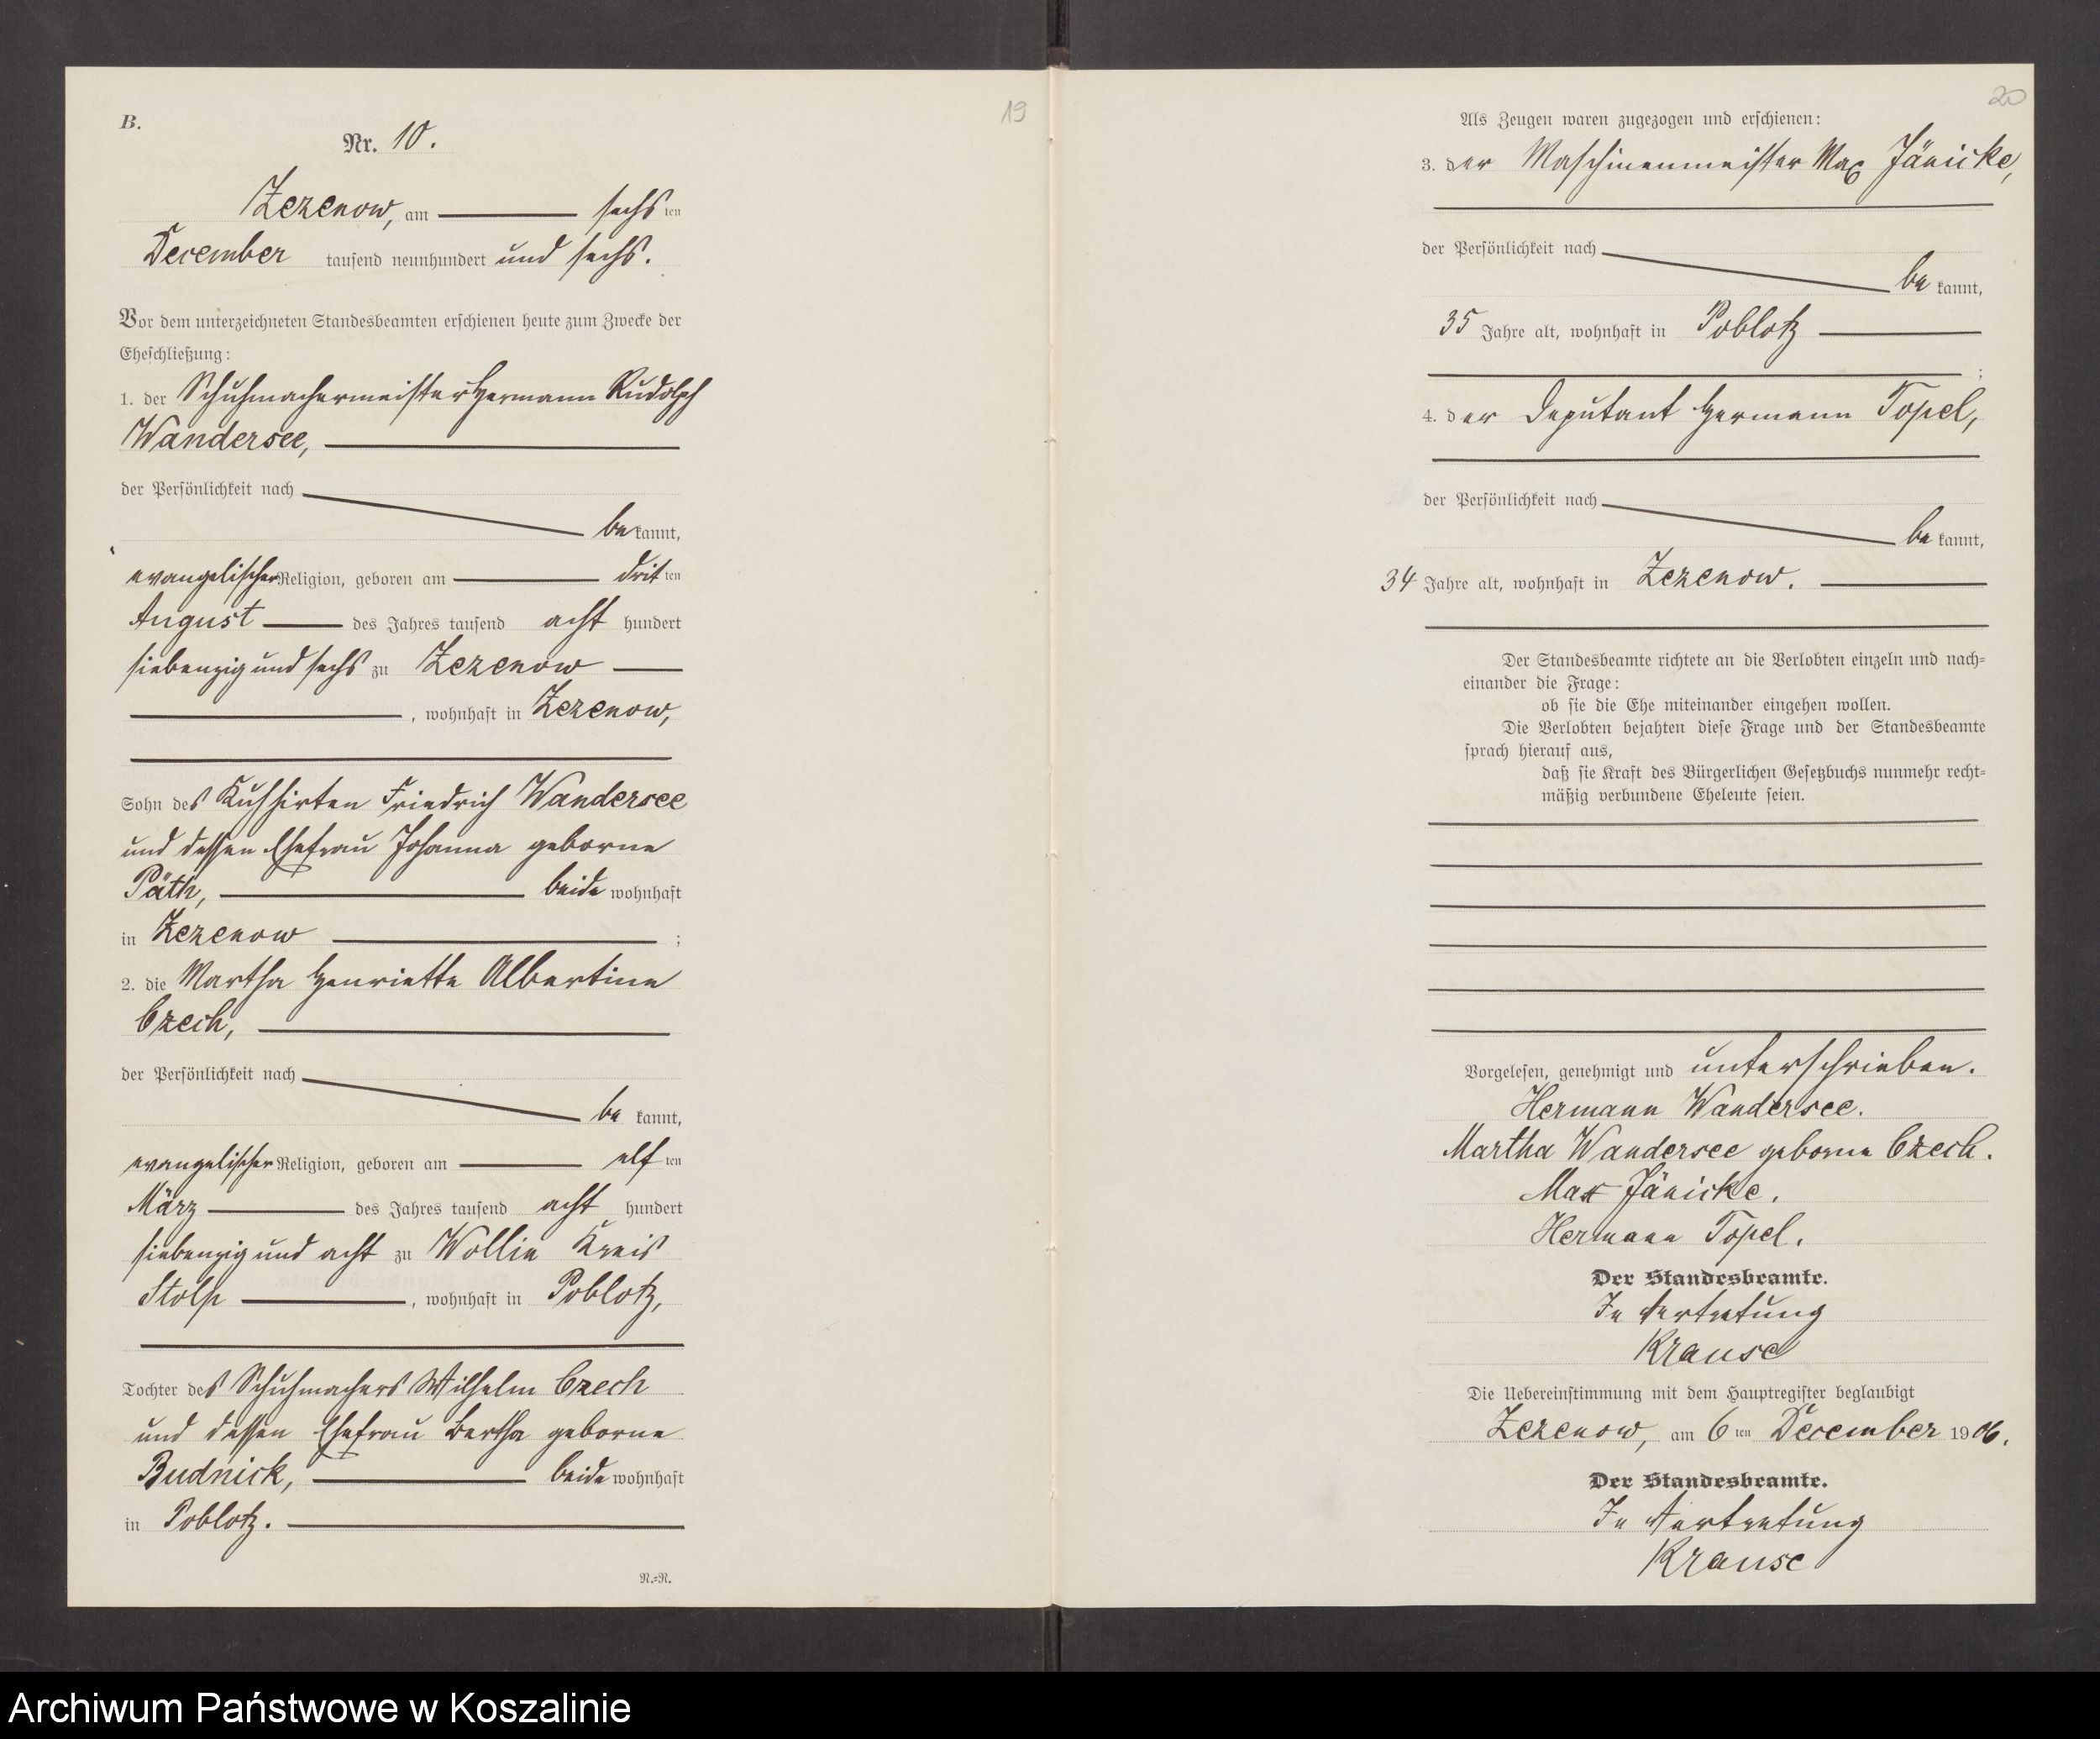 19
B.
Nr. 10.
Zezenow, am sechsten
December tausend neunhundert und sechs.
Vor dem unterzeichneten Standesbeamten erschienen heute zum Zwecke der
Eheschließung:
1. der Schuhmachermeister Hermann Rudolph
Wandersee,
der Persönlichkeit nach
bekannt,
evangelischer Religion, geboren am dritten
August des Jahres tausend acht hundert
siebenzig und sechs zu Zezenow
, wohnhaft in Zezenow,
Sohn des Kuhhirten Friedrich Wandersee
und dessen Ehefrau Johanna geborne
Päth, beide wohnhaft
in Zezenow ;
2. die Martha Henriette Albertine
Czech,
der Persönlichkeit nach
be kannt,
evangelischer Religion, geboren am elften
März des Jahres tausend acht hundert
siebenzig und acht zu Wollin Kreis
Stolp , wohnhaft in Poblotz,
Tochter des Schuhmachers Wilhelm Czech
und dessen Ehefrau Bertha geborne
Budnick, beide wohnhaft
in Poblotz.
N.=N.
20
Als Zeugen waren zugezogen und erschienen:
3. der Maschinenmeister Max Jänicke,
der Persönlichkeit nach
be kannt,
35 Jahre alt, wohnhaft in Poblotz
;
4. der Deputant Hermann Topel,
der Persönlichkeit nach
be kannt,
34 Jahre alt, wohnhaft in Zezenow.
Der Standesbeamte richtete an die Verlobten einzeln und nach=
einander die Frage:
ob sie die Ehe miteinander eingehen wollen.
Die Verlobten bejahten diese Frage und der Standesbeamte
sprach hierauf aus,
daß sie Kraft des Bürgerlichen Gesetzbuchs nunmehr recht=
mäßig verbundene Eheleute seien.
Vorgelesen, genehmigt und unterschrieben.
Hermann Wandersee.
Martha Wandersee geborne Czech.
Max Jänicke.
Hermann Topel.
Der Standesbeamte.
In Vertretung
Krause
Die Uebereinstimmung mit dem Hauptregister beglaubigt
Zezenow, am 6ten December 1906.
Der Standesbeamte.
In Vertretung
Krause
Archiwum Państwowe w Koszalinie